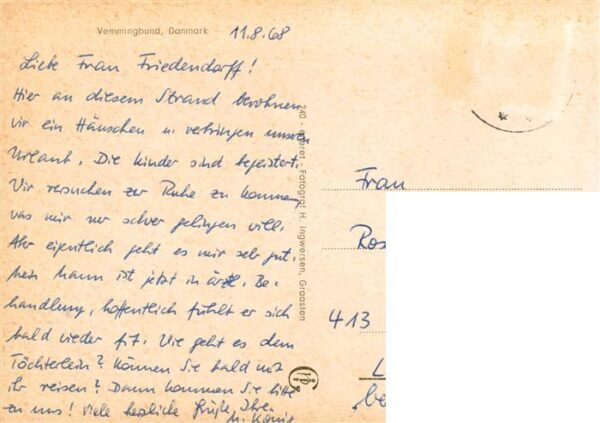 Vemmingbund, Danmark
11.8.68
Liebe Frau Friedendorff!
Hier an diesem Strand bewohnen
wir ein Häuschen u. verbringen unseren
Urlaub. Die Kinder sind begeistert.
Wir versuchen zur Ruhe zu kommen,
was mir nur schwer gelingen will.
Aber eigentlich geht es mir sehr gut.
Mein Mann ist jetzt in ärztl. Be-
handlung, hoffentlich fühlt er sich
bald wieder fit. Wie geht es dem
Töchterlein? Können Sie bald mit
ihr reisen? Dann kommen Sie bitte
zu uns! Viele herzliche Grüße, Ihre
M. König
240 - Fotograf H. Ingwersen, Graasten
Frau
Ros
413
L
be